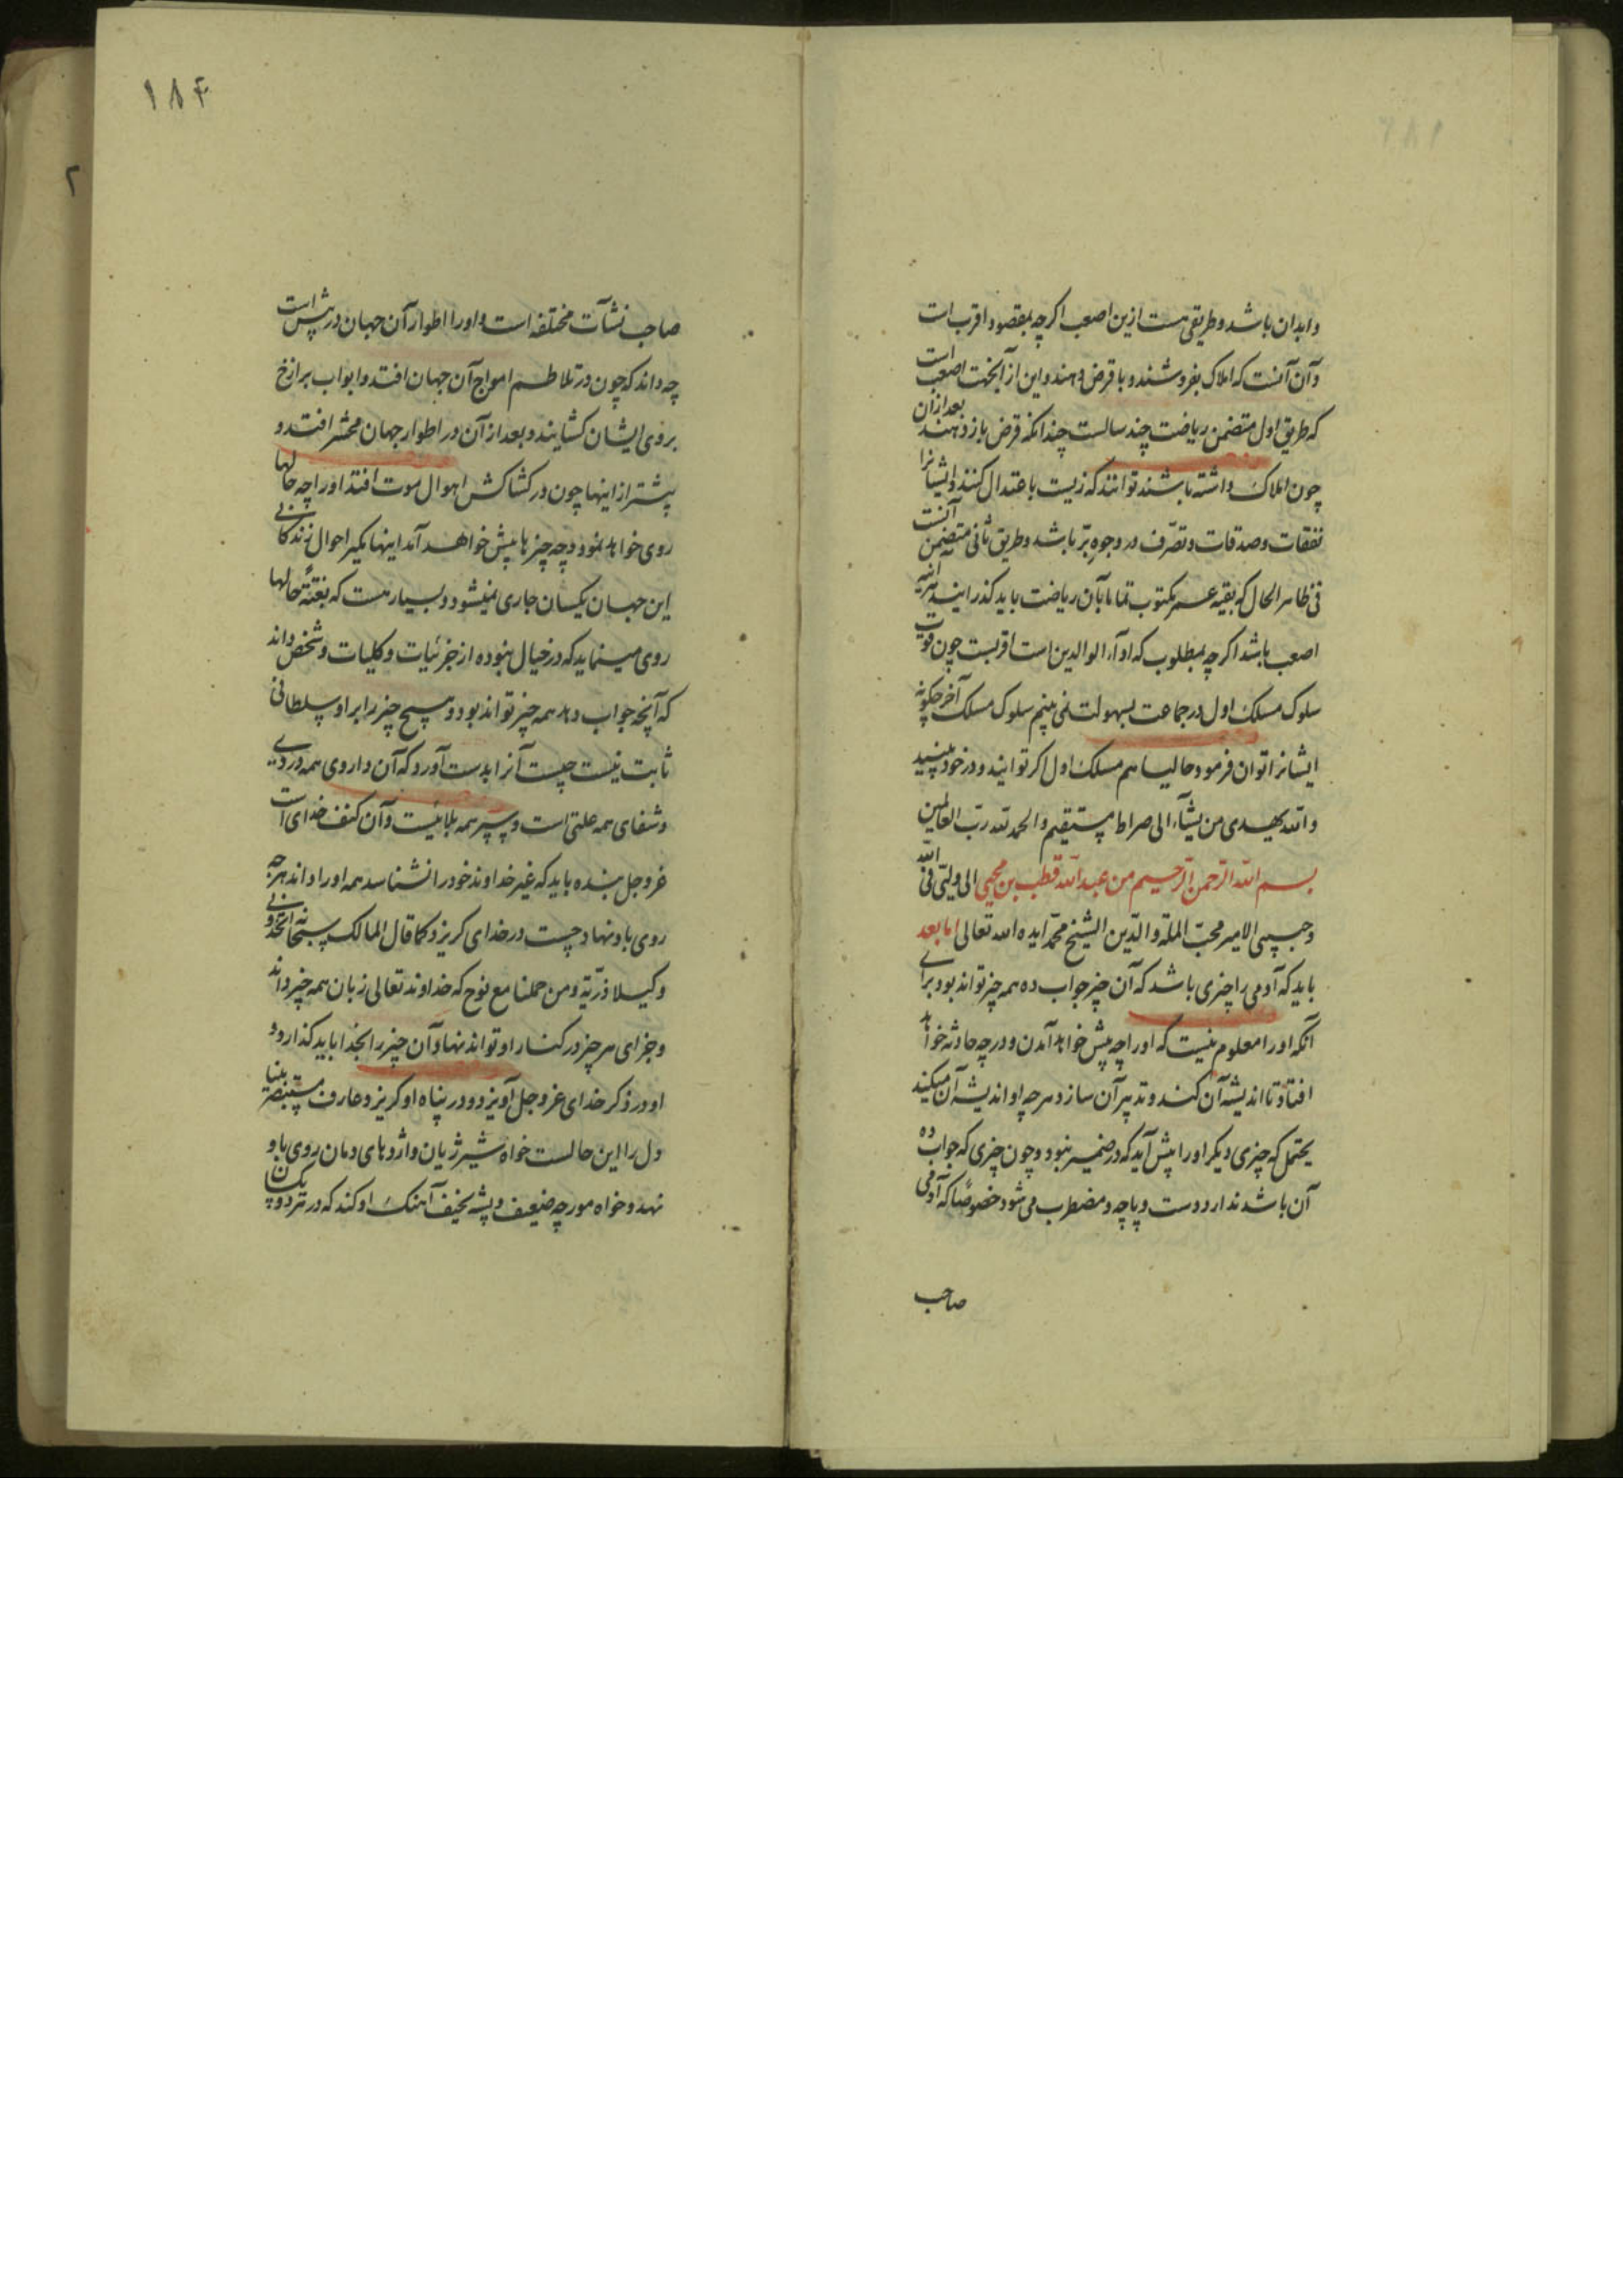 وابدان باشد و طریقی هست ازین اصعب اکرچه بمقصود اقرب است
و آن آنست که املاک بفروشند و با قرض دهند و این از آنجهت اصعب است
که طریق اول متضمن ریاضت چند سالست چندانکه قرض باز دهند بعد از آن
چون املاک داشته باشند توانند که زیست باعتدال کنند و ایشانرا
نفقات و صدقات و تصرّف در وجوه برّ باشد و طریق ثانی متضمن آنست
فی ظاهر الحال که بقیه عمر مکتوب تماما بآن ریاضت باید کذرانید
اصعب باشد اکرچه بمطلوب که اداء الوالدین است اقربست چون قوت
سلوک مسلک اول در جماعت بسهولت نمی بینم سلوک مسلک آخر چکونه
ایشانرا توان فرمود حالیا هم مسلک اول اکر توانید و در خود بینید
والله یهدی من یشآء الی صراط مستقیم والحمد لله رب العالمین
بسم الله الرحمن الرحیم من عبد الله قطب بن محیی الی ولیّی فی الله
و حبیبی الامیر محبّ الملة والدّین الشیخ محمّد ایده الله تعالی اما بعد
باید که آدمی را چیزی باشد که آن چیز جواب ده همه چیز تواند بود برای
آنکه او را معلوم نیست که او را چه پیش خواهد آمدن و در چه حادثه خواهد
افتاد تا اندیشه آن کند و تدبیر آن سازد هرچه او اندیشه آن میکند
یحتمل که چیزی دیکر او را پیش آید که در ضمیر نبود و چون چیزی که جواب ده
آن باشد ندارد دست و پاچه و مضطرب می شود خصوصًا که آدمی
صاحب
۱۸۴
۲
صاحب نشآت مختلفه است و او را اطوار آن جهان در پیش است
چه داند که چون در تلاطم امواج آن جهان افتد و ابواب برازخ
بروی ایشان کشایند و بعد از آن در اطوار جهان محشر افتد و
پیشتر از اینها چون در کشاکش اهوال موت افتد او را چه حالها
روی خواهد نمود و چه چیزها پیش خواهد آمد اینها بکیر احوال زندکانی
این جهان یکسان جاری نمیشود و بسیار هست که بغتةً حالها
روی مینماید که در خیال نبوده از جزئیات و کلیات و شخص داند
که آنچه جواب ده همه چیز تواند بود و هیچ چیز را بر او سلطانی
ثابت نیست چیست آنرا بدست آورد که آن داروی همه دردی
و شفای همه علتی است و سپر همه بلائیست و آن کنف خدای است
عز و جل بنده باید که غیر خداوند خود را نشناسد همه او را داند هرچه
روی باو نهاد چست در خدای کریزد کما قال المالک سبحانه الّا تتّخذوا من دونی
وکیلا ذرّیّة من حملنا مع نوح که خداوند تعالی زبان همه چیز داند
و جزای هر چیز در کنار او تواند نهاد آن چیز را بخدا باید کذارد و
او در ذکر خدای عز و جل آویزد و در پناه او کریزد و عارف مستبصر بینا
دل را این حالست خواه شیر ژیان و اژدهای دمان روی باو
نهد و خواه مورچه ضعیف و پشه نحیف آهنک او کند که در نزد او یکسان